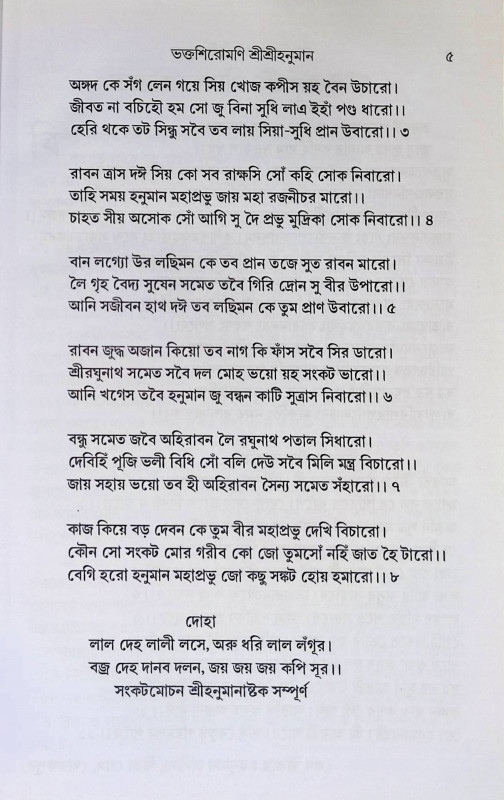 ভক্তশিরোমণি শ্রীশ্রীহনুমান ৫
অঙ্গদ কে সঁগ লেন গয়ে সিয় খোজ কপীস য়হ বৈন উচারো।
জীবত না বচিহৌ হম সো জু বিনা সুধি লাএ ইহাঁ পগু ধারো।।
হেরি থকে তট সিন্ধু সবৈ তব লায় সিয়া-সুধি প্রান উবারো।। ৩
রাবন ত্রাস দঈ সিয় কো সব রাক্ষসি সোঁ কহি সোক নিবারো।
তাহি সময় হনুমান মহাপ্রভু জায় মহা রজনীচর মারো।।
চাহত সীয় অসোক সোঁ আগি সু দৈ প্রভু মুদ্রিকা সোক নিবারো।। ৪
বান লগ্যো উর লছিমন কে তব প্রান তজে সুত রাবন মারো।
লৈ গৃহ বৈদ্য সুষেন সমেত তবৈ গিরি দ্রোন সু বীর উপারো।।
আনি সজীবন হাথ দঈ তব লছিমন কে তুম প্রাণ উবারো।। ৫
রাবন জুদ্ধ অজান কিয়ো তব নাগ কি ফাঁস সবৈ সির ডারো।
শ্রীরঘুনাথ সমেত সবৈ দল মোহ ভয়ো য়হ সংকট ভারো।।
আনি খগেস তবৈ হনুমান জু বন্ধন কাটি সুত্রাস নিবারো।। ৬
বন্ধু সমেত জবৈ অহিরাবন লৈ রঘুনাথ পতাল সিধারো।
দেবিহিঁ পূজি ভলী বিধি সোঁ বলি দেউ সবৈ মিলি মন্ত্র বিচারো।।
জায় সহায় ভয়ো তব হী অহিরাবন সৈন্য সমেত সঁহারো।। ৭
কাজ কিয়ে বড় দেবন কে তুম বীর মহাপ্রভু দেখি বিচারো।
কৌন সো সংকট মোর গরীব কো জো তুমসোঁ নহিঁ জাত হৈ টারো।।
বেগি হরো হনুমান মহাপ্রভু জো কছু সঙ্কট হোয় হমারো।। ৮
দোহা
লাল দেহ লালী লসে, অরু ধরি লাল লঁগূর।
বজ্র দেহ দানব দলন, জয় জয় জয় কপি সূর।।
সংকটমোচন শ্রীহনুমানাষ্টক সম্পূর্ণ